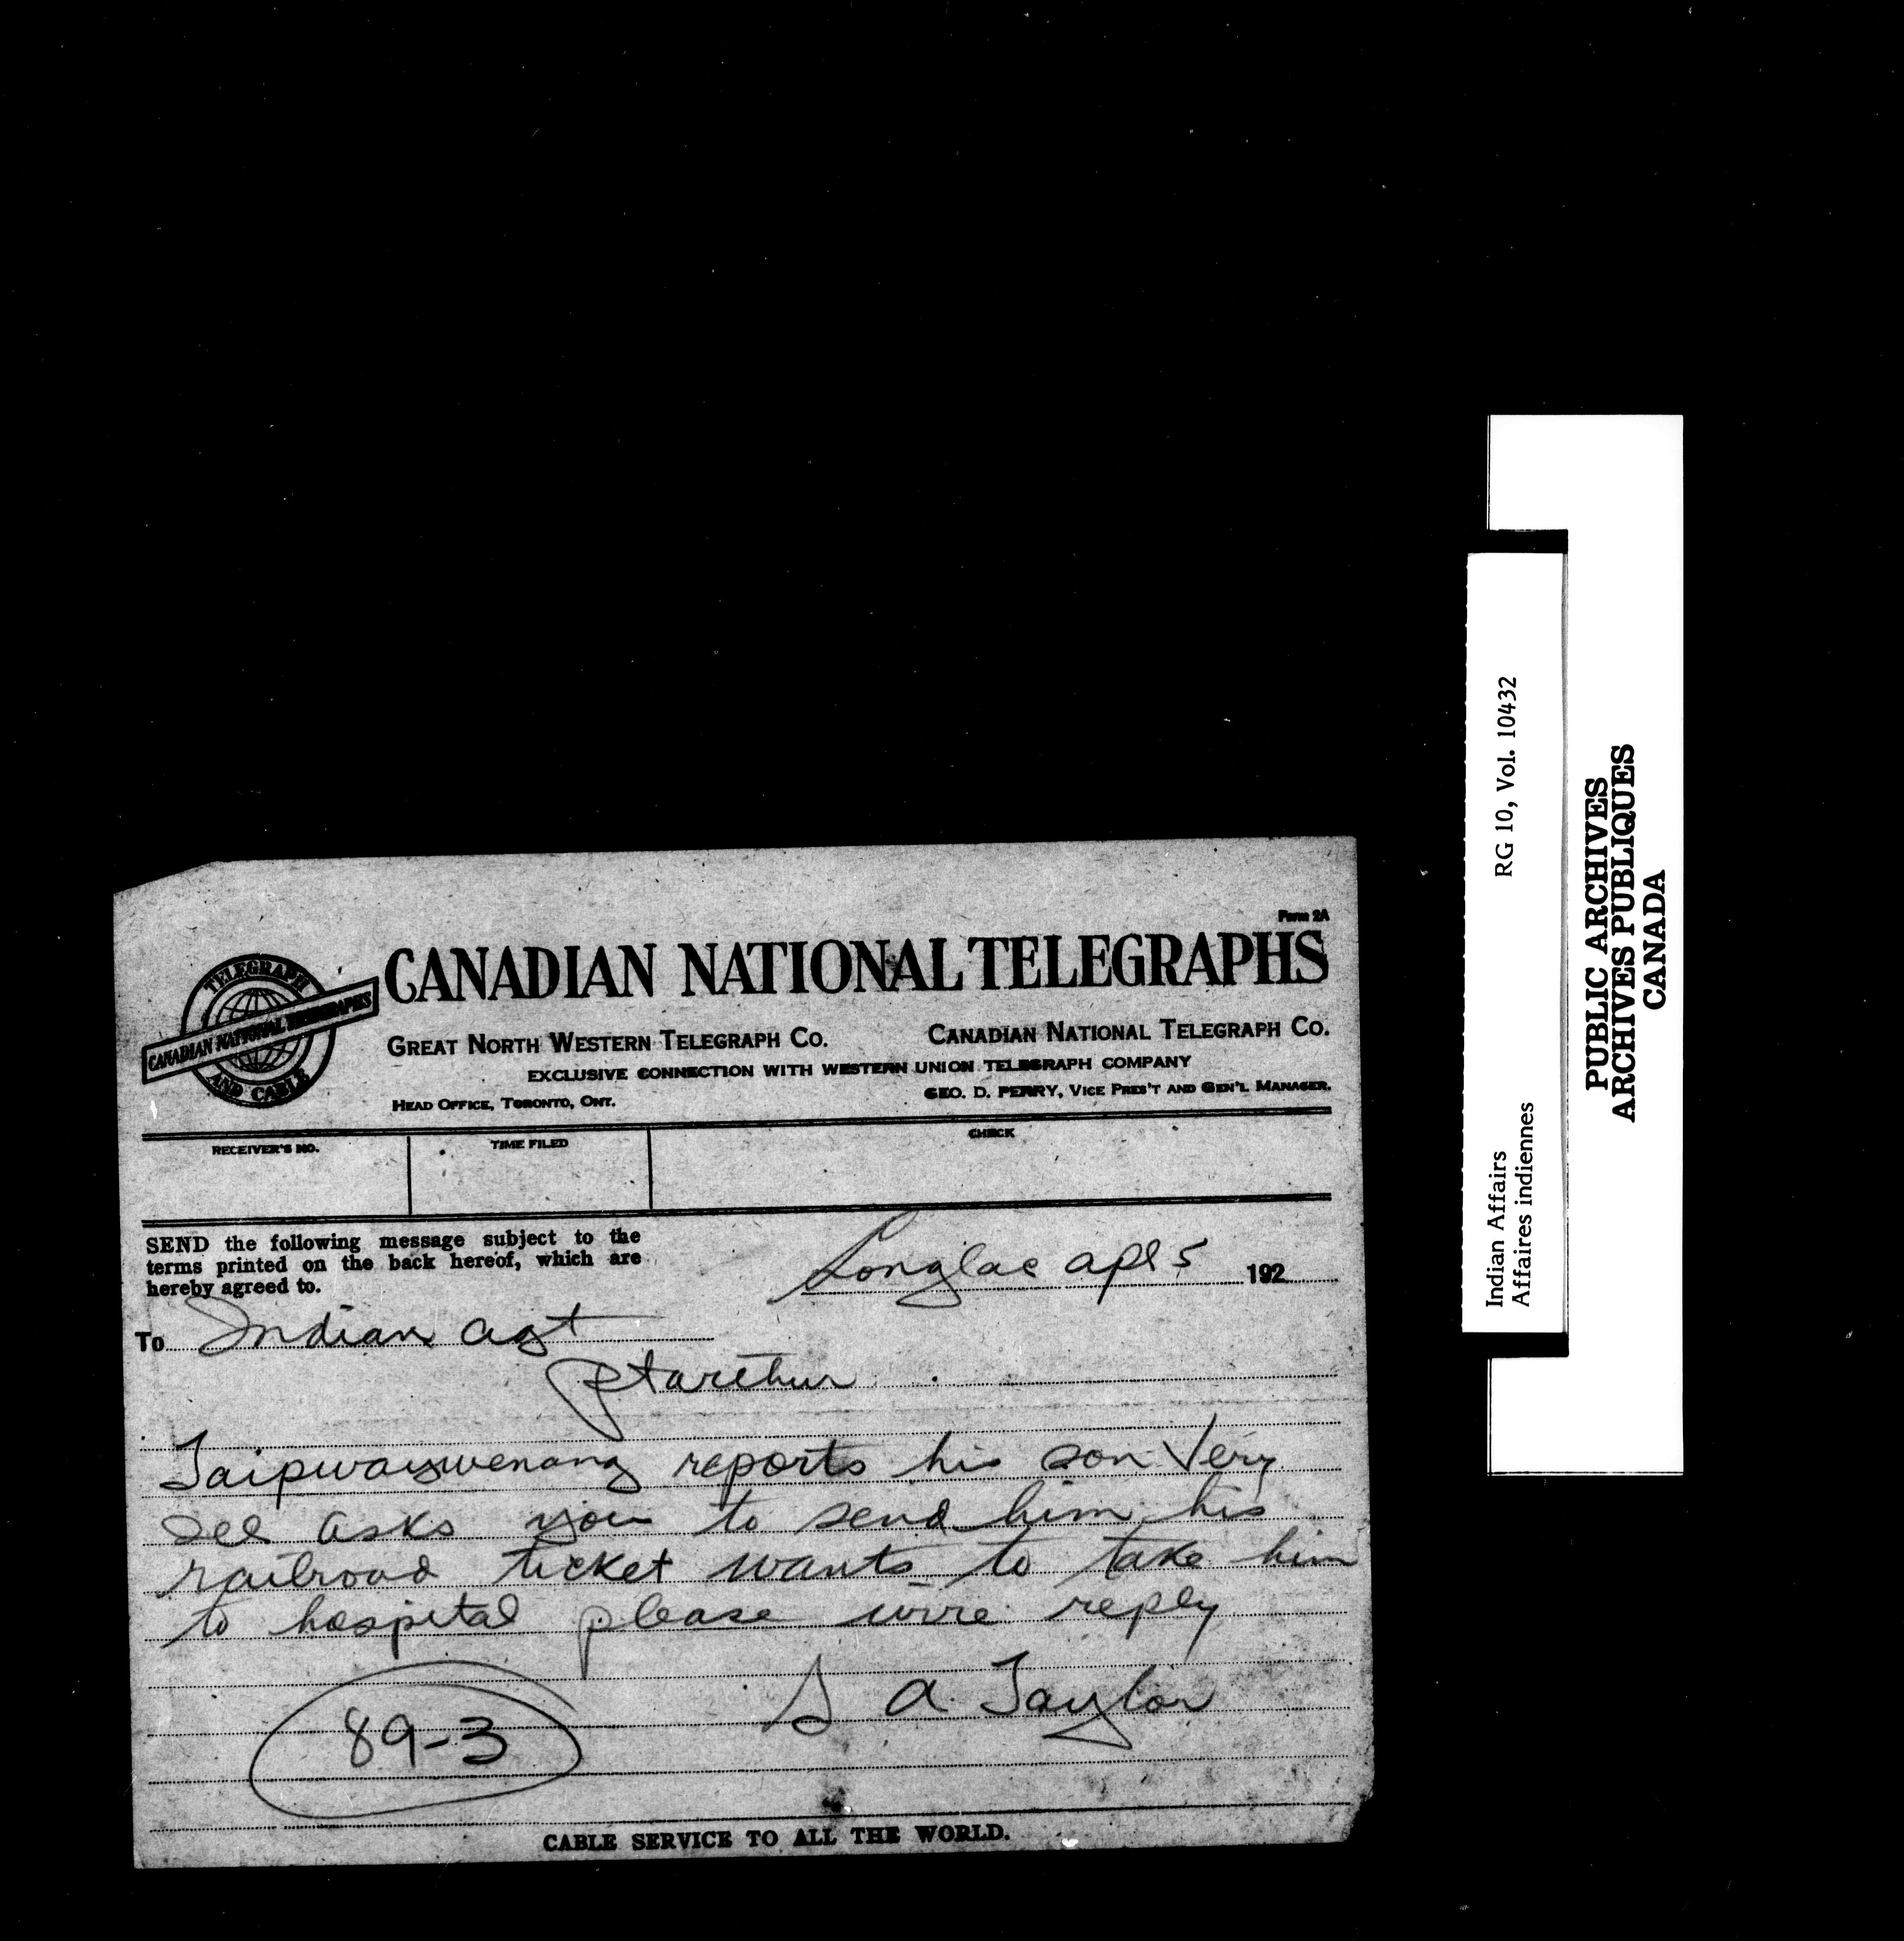 Form 2A
TELEGRAPH
CANADIAN NATIONAL TELEGRAPHS
AND CABLE
CANADIAN NATIONAL TELEGRAPHS
GREAT NORTH WESTERN TELEGRAPH CO. CANADIAN NATIONAL TELEGRAPH CO.
EXCLUSIVE CONNECTION WITH WESTERN UNION TELEGRAPH COMPANY
HEAD OFFICE, TORONTO, ONT. GEO. D. PERRY, VICE PRES'T AND GEN'L MANAGER.
RECEIVER'S NO. TIME FILED CHECK
SEND the following message subject to the
terms printed on the back hereof, which are
hereby agreed to.
Longlac apl 5 192
To Indian agt
Ptarthur
Taipwaywenang reports his son Very
ill asks you to send him his
railroad ticket wants to take him
to hospital please wire reply
S a Taylor
89-3
CABLE SERVICE TO ALL THE WORLD.
Indian Affairs RG 10, Vol. 10432
Affaires indiennes
PUBLIC ARCHIVES
ARCHIVES PUBLIQUES
CANADA